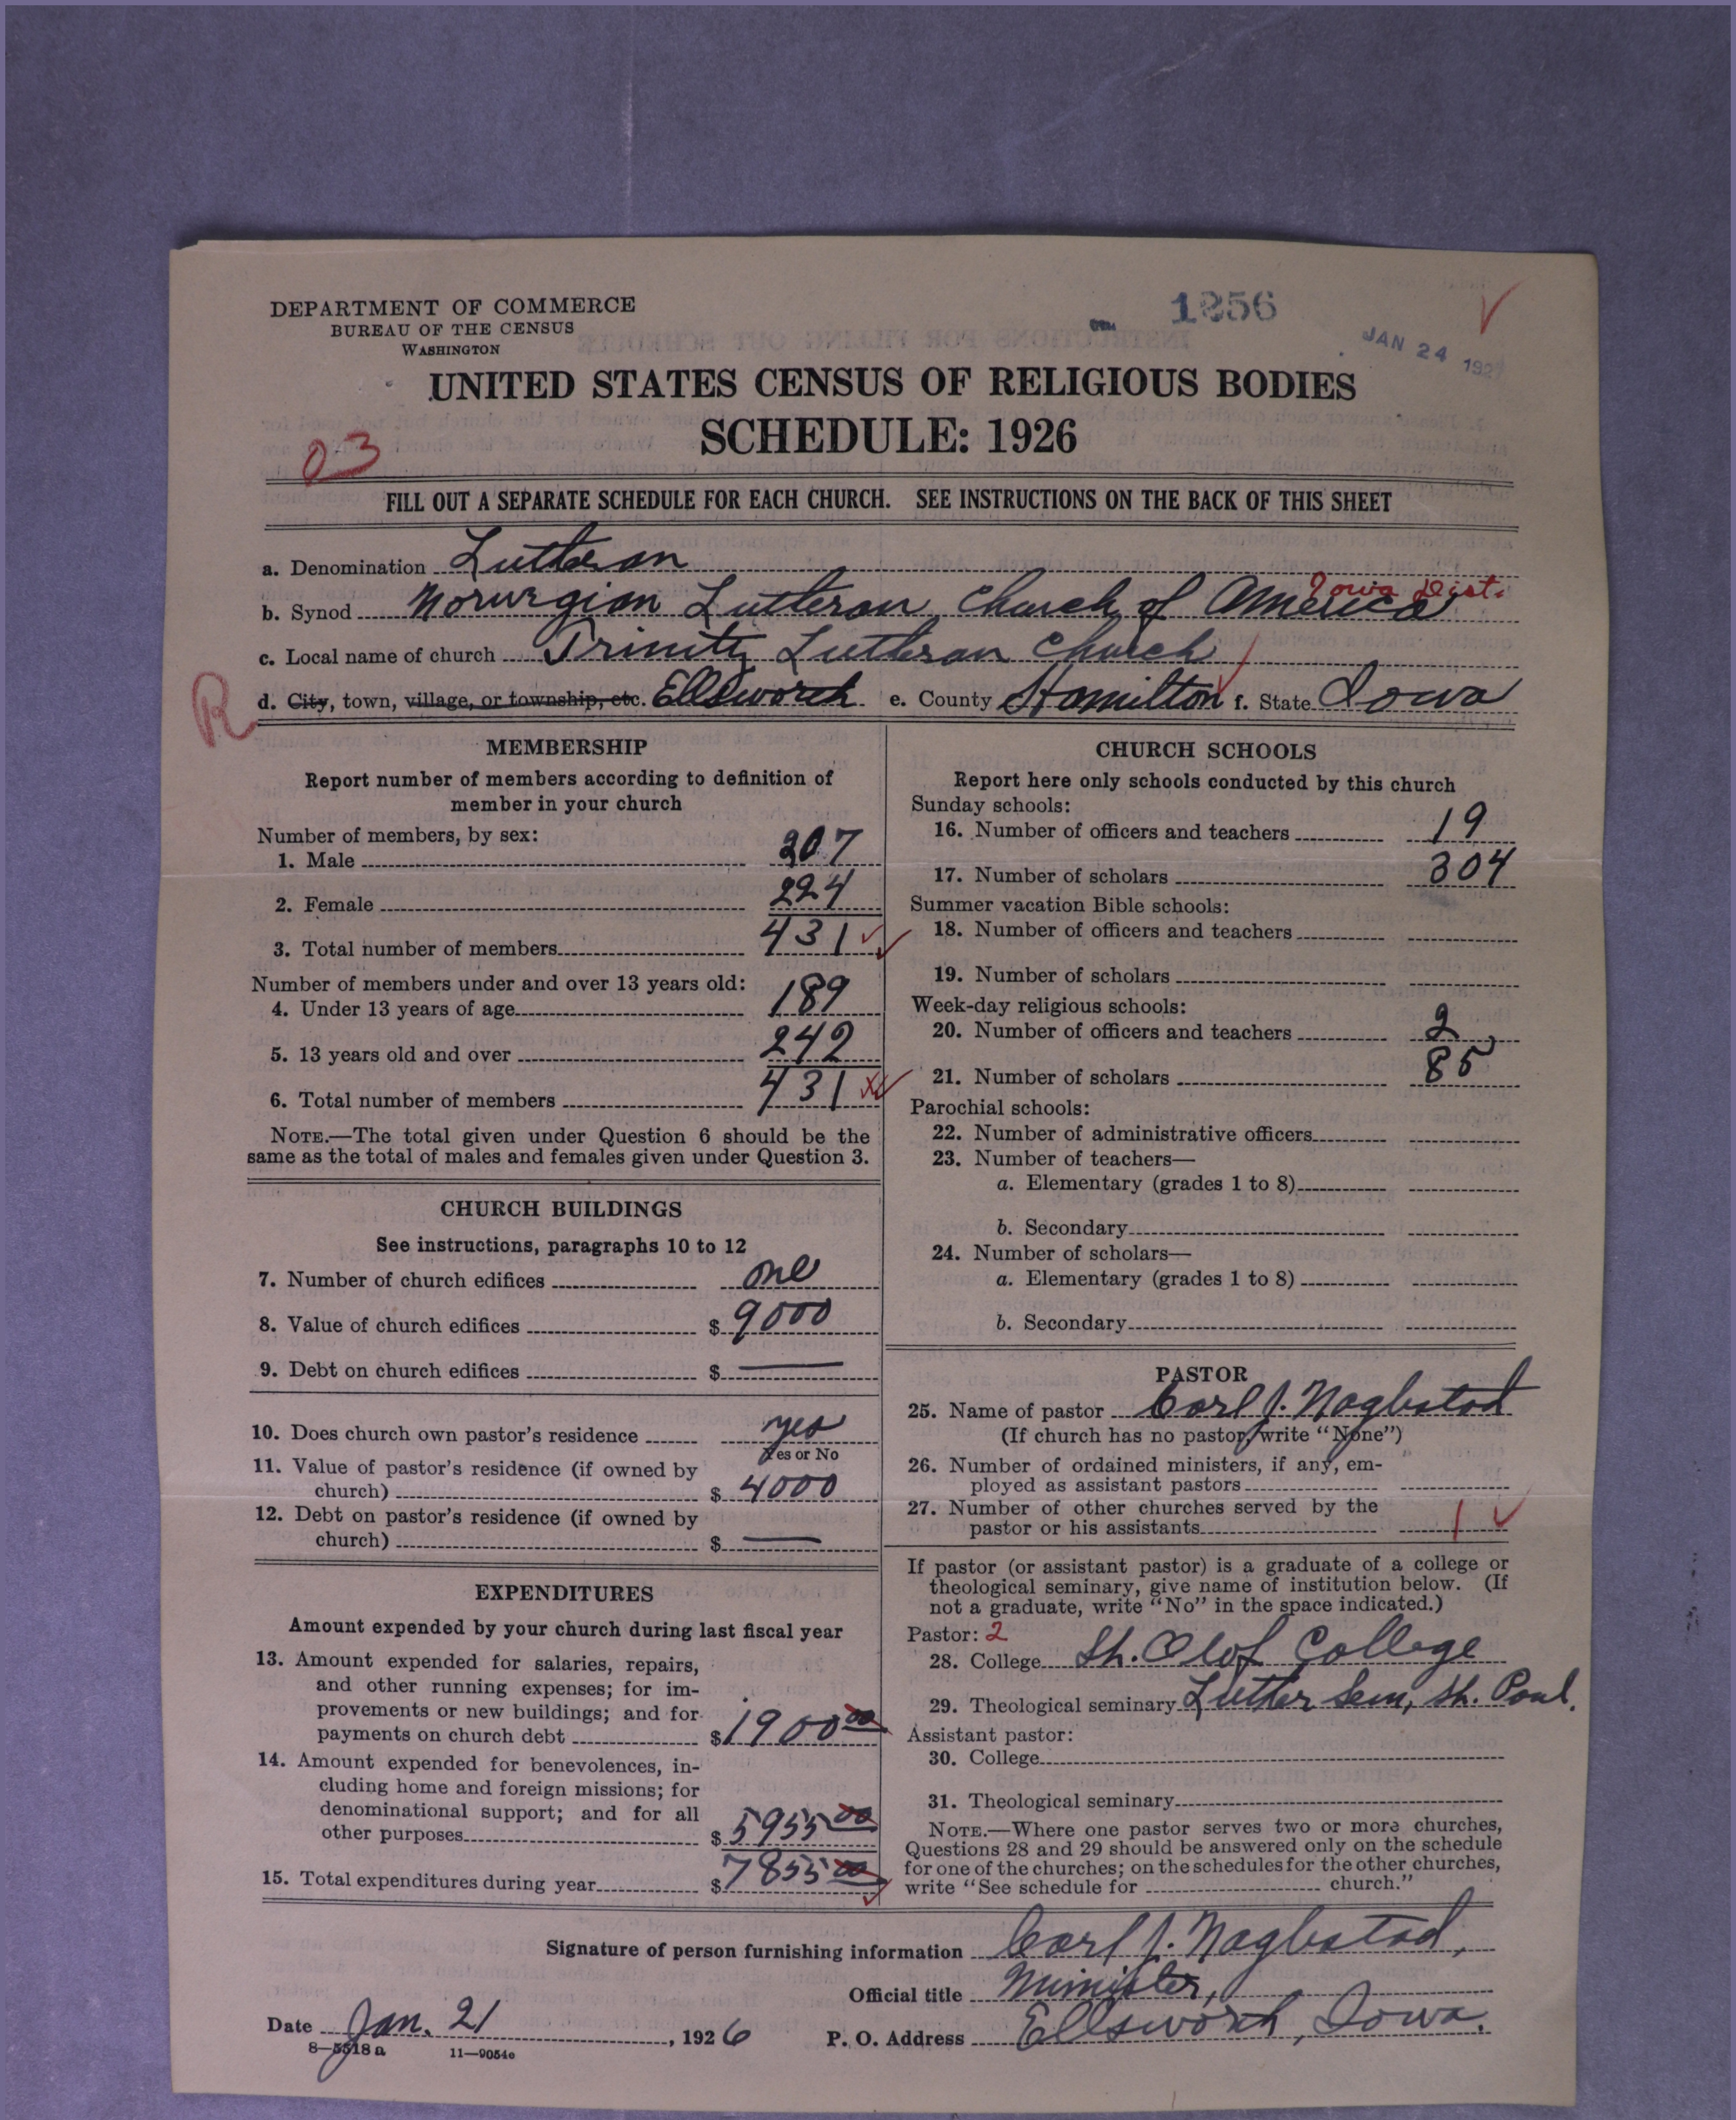 DEPARTMENT OF COMMERCE
BUREAU OF THE CENSUS
WASHINGTON
1256
JAN 24 1927
UNITED STATES CENSUS OF RELIGIOUS BODIES
SCHEDULE: 1926
03
FILL OUT A SEPARATE SCHEDULE FOR EACH CHURCH. SEE INSTRUCTIONS ON THE BACK OF THIS SHEET
a. Denomination Lutheran
b. Synod Norwegian Lutheran Church of America Iowa Dist.
c. Local name of church Trinity Lutheran Church
R
d. City, town, village, or township, etc. Ellsworth e. County Hamilton f. State Iowa
MEMBERSHIP
Report number of members according to definition of
member in your church
Number of members, by sex:
1. Male 207
2. Female 224
3. Total number of members 431
Number of members under and over 13 years old:
4. Under 13 years of age 189
5. 13 years old and over 242
6. Total number of members 431
NOTE.—The total given under Question 6 should be the
same as the total of males and females given under Question 3.
CHURCH BUILDINGS
See instructions, paragraphs 10 to 12
7. Number of church edifices one
8. Value of church edifices $ 9000
9. Debt on church edifices $ —
10. Does church own pastor's residence yes
Yes or No
11. Value of pastor's residence (if owned by
church) $ 4000
12. Debt on pastor's residence (if owned by
church) $ —
EXPENDITURES
Amount expended by your church during last fiscal year
13. Amount expended for salaries, repairs,
and other running expenses; for im-
provements or new buildings; and for
payments on church debt $ 1900 00
14. Amount expended for benevolences, in-
cluding home and foreign missions; for
denominational support; and for all
other purposes $ 5955 00
15. Total expenditures during year $ 7855 00
CHURCH SCHOOLS
Report here only schools conducted by this church
Sunday schools:
16. Number of officers and teachers 19
17. Number of scholars 304
Summer vacation Bible schools:
18. Number of officers and teachers
19. Number of scholars
Week-day religious schools:
20. Number of officers and teachers 2
21. Number of scholars 85
Parochial schools:
22. Number of administrative officers
23. Number of teachers—
a. Elementary (grades 1 to 8)
b. Secondary
24. Number of scholars—
a. Elementary (grades 1 to 8)
b. Secondary
PASTOR
25. Name of pastor Carl J. Nagbstad
(If church has no pastor, write "None")
26. Number of ordained ministers, if any, em-
ployed as assistant pastors
27. Number of other churches served by the
pastor or his assistants 1
If pastor (or assistant pastor) is a graduate of a college or
theological seminary, give name of institution below. (If
not a graduate, write "No" in the space indicated.)
Pastor: 2
28. College St. Olof College
29. Theological seminary Luther Sem, St. Paul.
Assistant pastor:
30. College
31. Theological seminary
NOTE.—Where one pastor serves two or more churches,
Questions 28 and 29 should be answered only on the schedule
for one of the churches; on the schedules for the other churches,
write "See schedule for church."
Signature of person furnishing information Carl J. Nagbstad,
Official title Minister,
Date Jan. 21, 1926 P. O. Address Ellsworth, Iowa.
8—5518 a 11—9054c